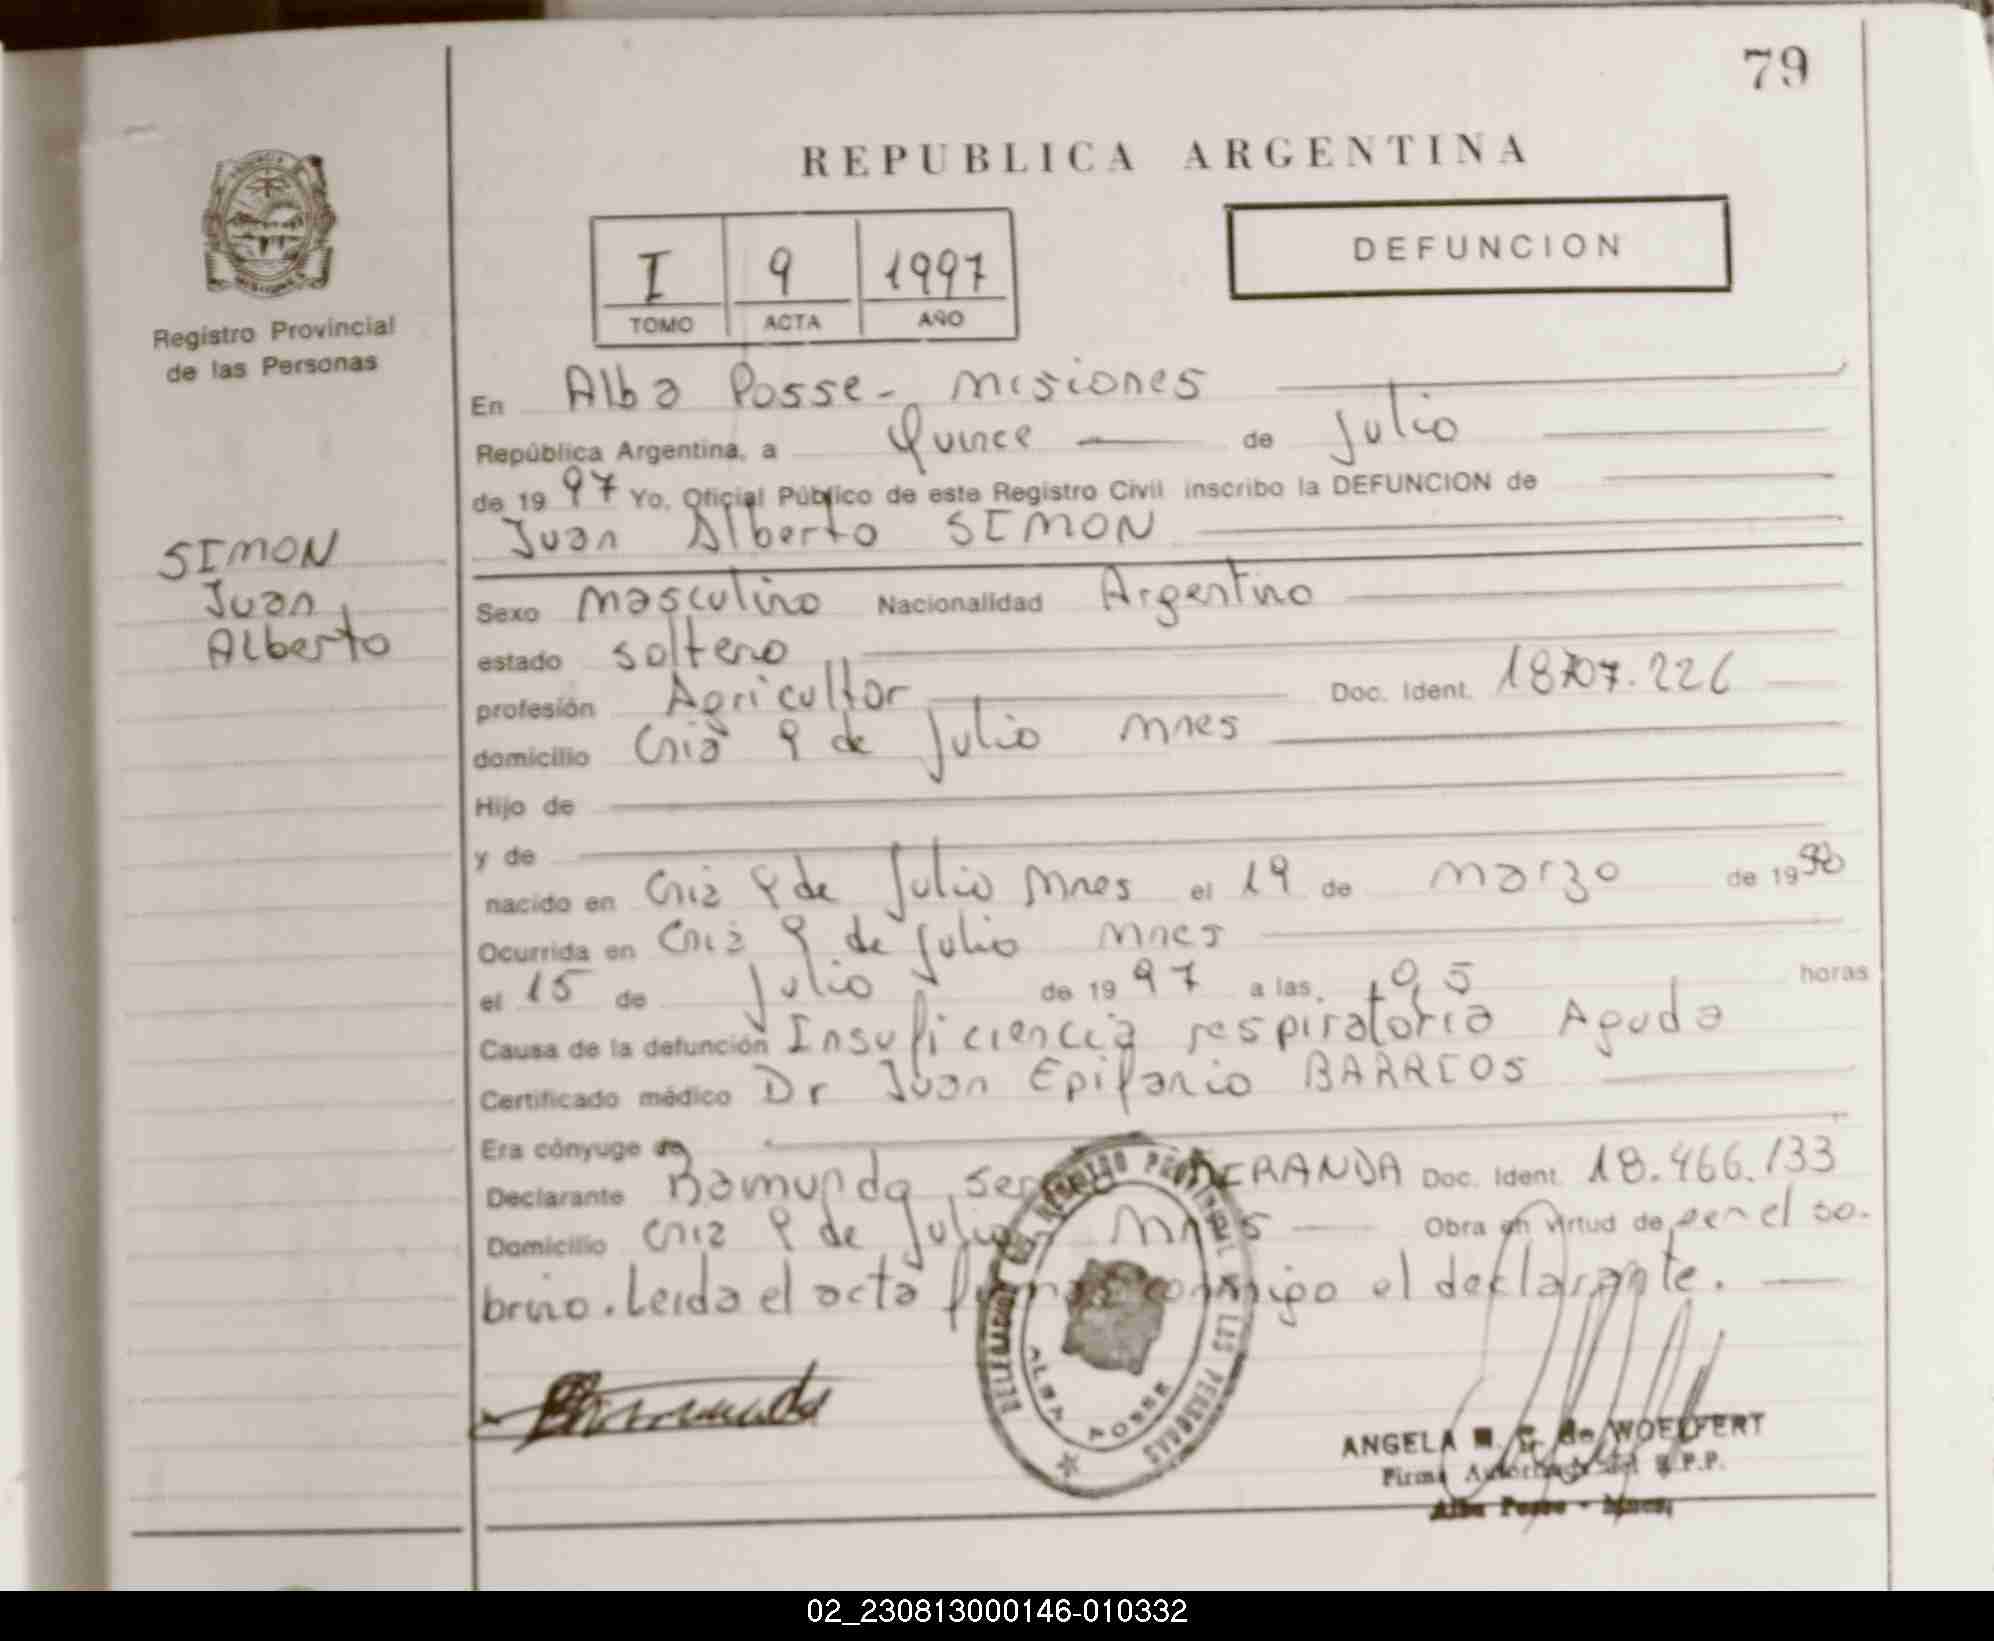 79
REPUBLICA ARGENTINA
DEFUNCION
I 9 1997
TOMO ACTA AÑO
Registro Provincial
de las Personas
En Alba Posse - Misiones
República Argentina, a Quince de Julio
de 19 97 Yo, Oficial Público de este Registro Civil inscribo la DEFUNCION de
Juan Alberto SIMON
SIMON
Juan
Alberto
Sexo masculino Nacionalidad Argentino
estado soltero
profesión Agricultor Doc. Ident. 18707.226
domicilio Cnia 9 de Julio Mnes
Hijo de
y de
nacido en Cnia 9 de Julio Mnes el 19 de marzo de 19
Ocurrida en Cnia 9 de Julio Mnes
el 15 de Julio de 19 97 a las 0,5 horas
Causa de la defunción Insuficiencia respiratoria Aguda
Certificado médico Dr Juan Epifanio BARRIOS
Era cónyuge de
Declarante Ramunda MERANDA Doc. Ident. 18.466.133
Domicilio Cnia 9 de Julio Mnes Obra en virtud de ser el so-
brino. Leida el acta firma conmigo el declarante.
DELEGACION REGISTRO PROVINCIAL DE LAS PERSONAS
ALBA POSSE
ANGELA de WOELFERT
Firma Autorizada del R.P.P.
Alba Posse - Mnes.
02_230813000146-010332